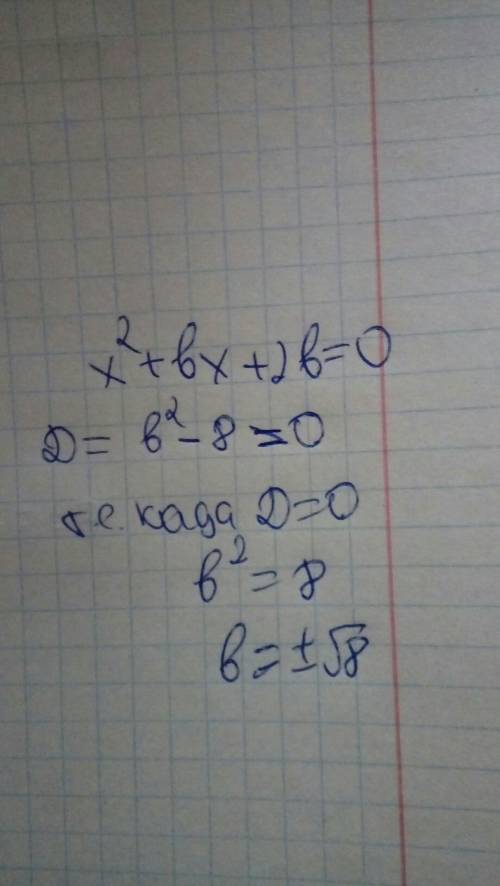 x² + bx + 2b = 0
D = b² - 8 = 0
т.е. када D = 0
b² = 8
b = ±√8